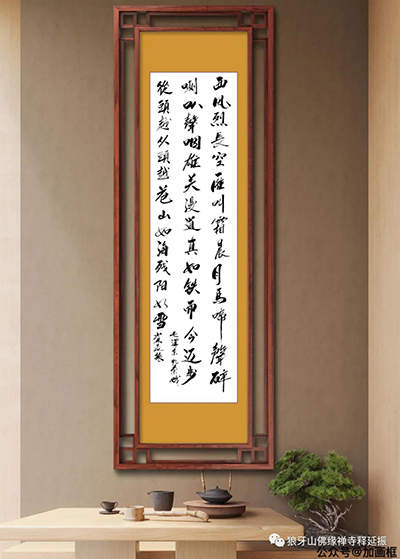 西风烈長空雁叫霜晨月馬啼聲碎
喇叭聲咽雄关漫道真如鉄而今迈步
從頭越从頭越苍山如海残阳如雪
毛澤东忆秦娥
狼牙山佛缘禅寺释延振
公众号@加画框